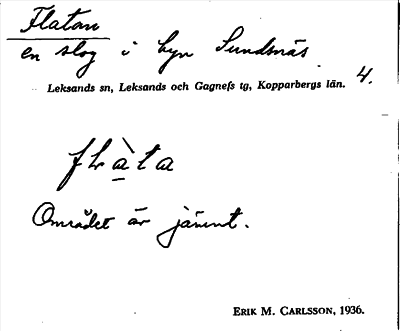 Flatan
en slog i byn Sundsnäs.
Leksands sn, Leksands och Gagnefs tg, Kopparbergs län. 4.
flàta
Området är jämnt.
ERIK M. CARLSSON, 1936.